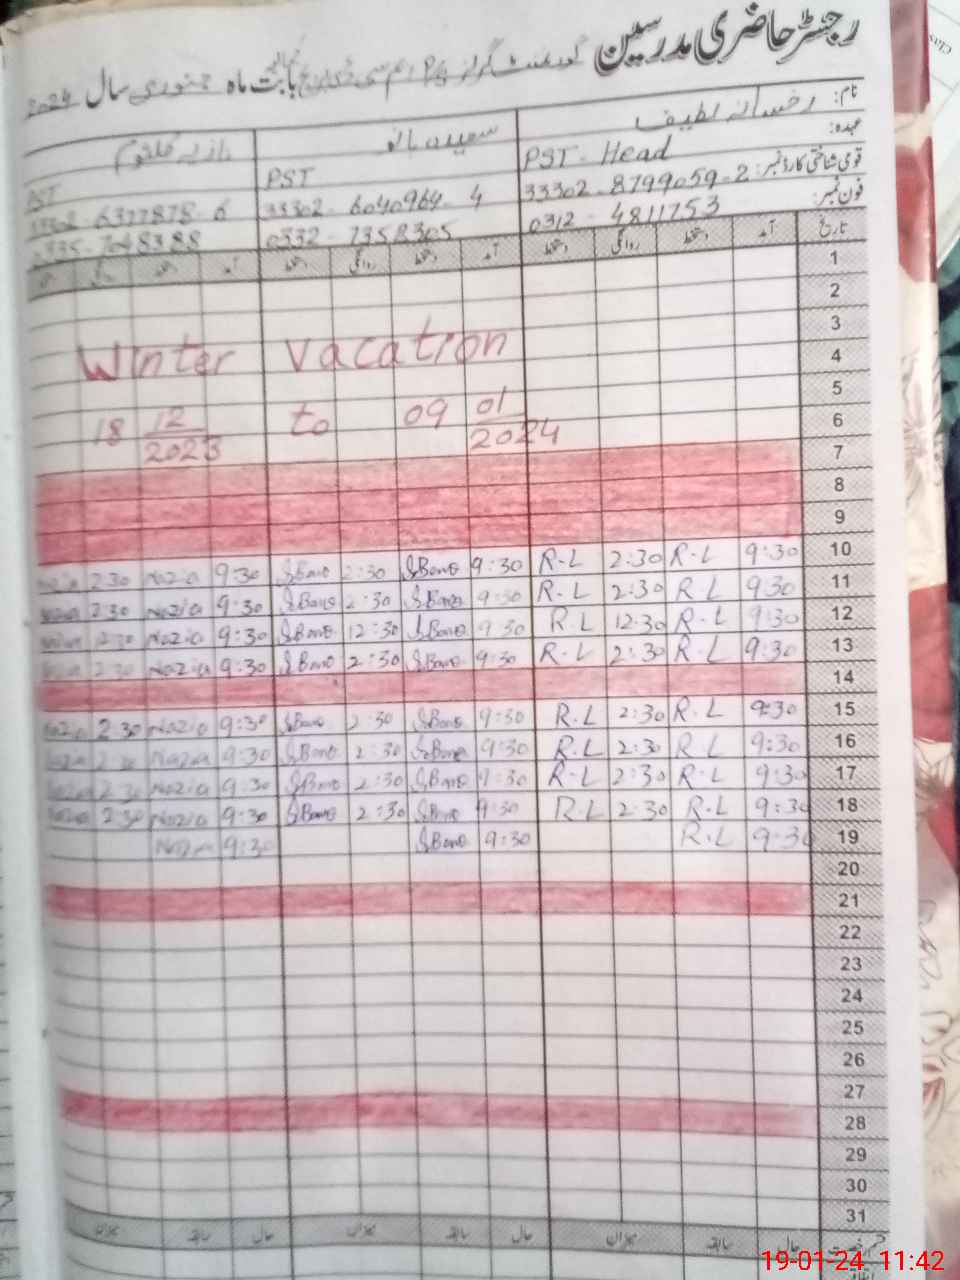 رجسٹر حاضری مدرسین گورنمنٹ گرلز P/s بابت ماہ جنوری سال 2024
نام: رخسانہ لطیف سعیدہ بانو نازیہ کلثوم
عہدہ: PST - Head PST PST
قومی شناختی کارڈ نمبر: 33302 - 8799059 - 2 33302 - 6040964 - 4 33302 - 6377878 - 6
فون نمبر: 0312 - 4811753 0332 - 7358305 0335 - 7048388
تاریخ آمد دستخط روانگی دستخط آمد دستخط روانگی دستخط آمد دستخط روانگی
1
2
3
Winter vacation 4
5
18 12/2023 to 09 01/2024 6
7
8
9
Nazia 2:30 Nazia 9:30 S.Bano 2:30 S.Bano 9:30 R.L 2:30 R.L 9:30 10
Nazia 2:30 Nazia 9:30 S.Bano 2:30 S.Bano 9:30 R.L 2:30 R.L 9:30 11
Nazia 12:30 Nazia 9:30 S.Bano 12:30 S.Bano 9:30 R.L 12:30 R.L 9:30 12
Nazia 2:30 Nazia 9:30 S.Bano 2:30 S.Bano 9:30 R.L 2:30 R.L 9:30 13
14
Nazia 2:30 Nazia 9:30 S.Bano 2:30 S.Bano 9:30 R.L 2:30 R.L 9:30 15
Nazia 2:30 Nazia 9:30 S.Bano 2:30 S.Bano 9:30 R.L 2:30 R.L 9:30 16
Nazia 2:30 Nazia 9:30 S.Bano 2:30 S.Bano 9:30 R.L 2:30 R.L 9:30 17
Nazia 2:30 Nazia 9:30 S.Bano 2:30 S.Bano 9:30 R.L 2:30 R.L 9:30 18
Nazia 9:30 S.Bano 9:30 R.L 9:30 19
20
21
22
23
24
25
26
27
28
29
30
31
رخصت حال سابقہ میزان حال سابقہ میزان حال سابقہ میزان
19-01-24 11:42